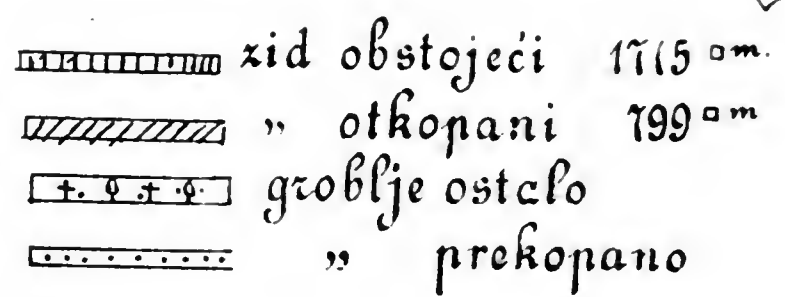 zid obstojeći 1715 □ m.
„ otkopani 799 □ m
groblje ostalo
„ prekopano